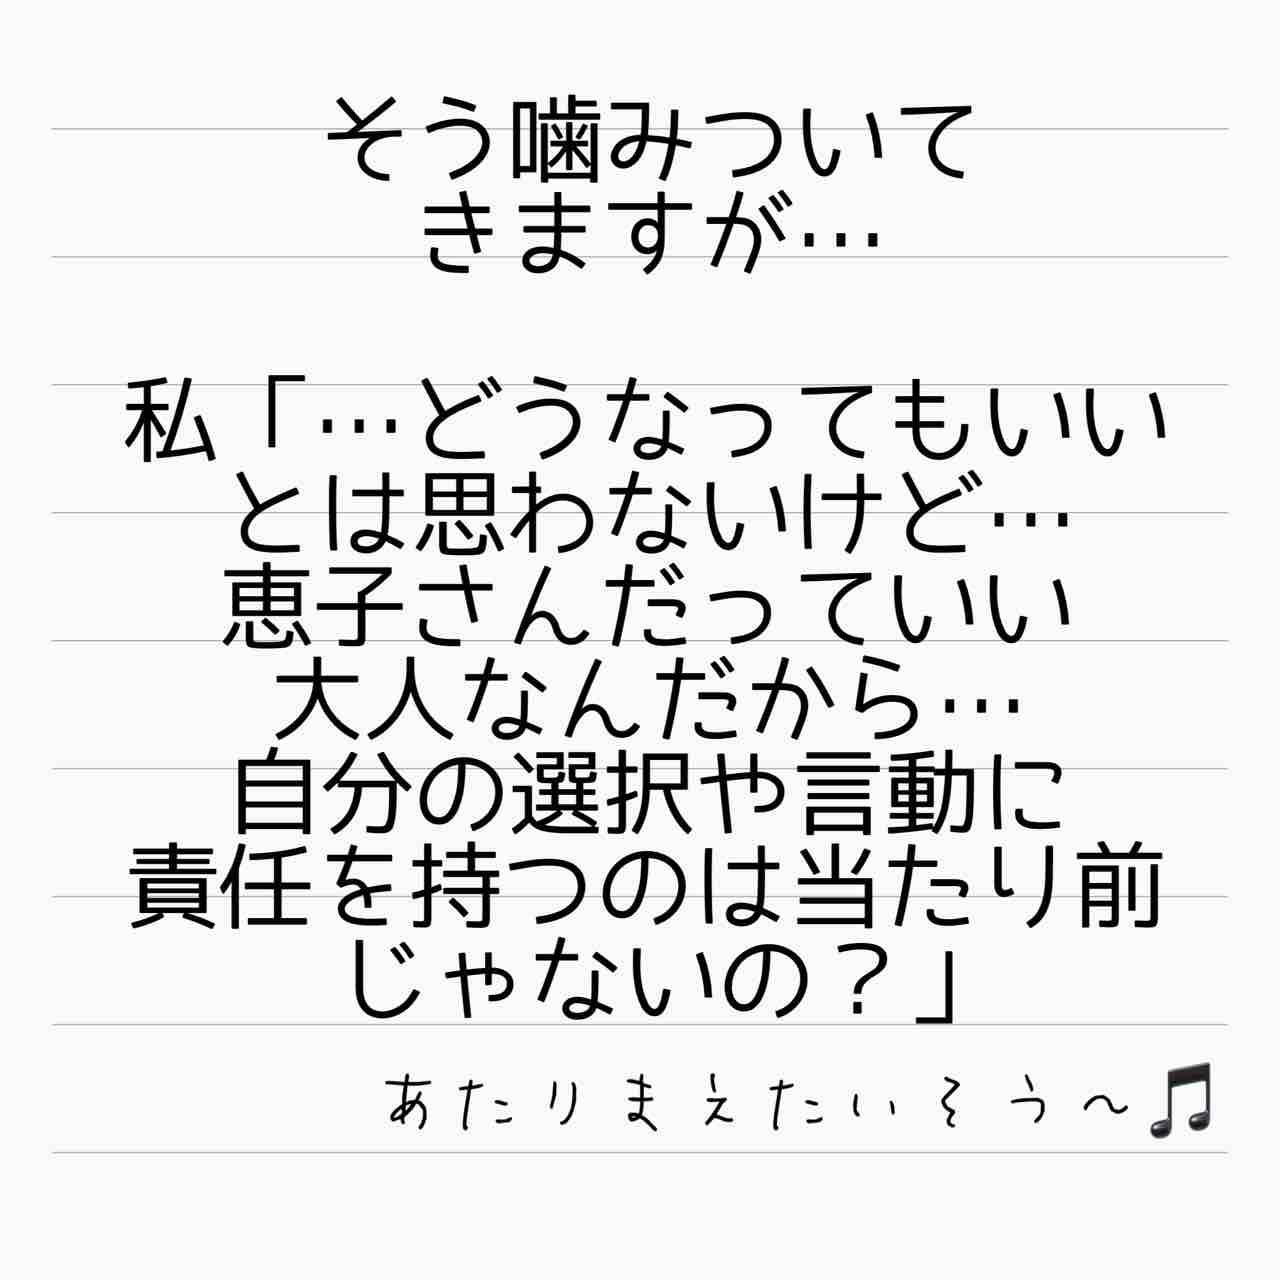 そう噛みついて
きますが…
私「…どうなってもいい
とは思わないけど…
恵子さんだっていい
大人なんだから…
自分の選択や言動に
責任を持つのは当たり前
じゃないの？」
あたりまえたいそう〜🎵